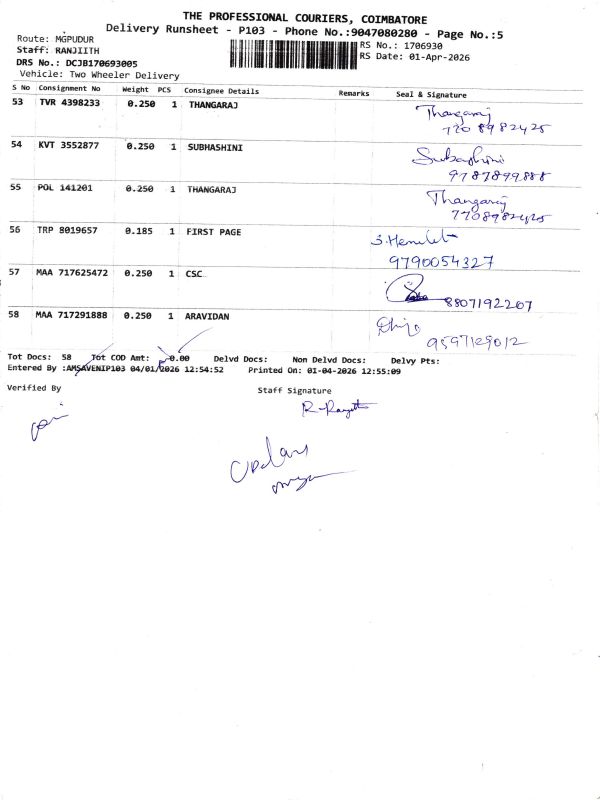 THE PROFESSIONAL COURIERS, COIMBATORE
Delivery Runsheet - P103 - Phone No.:9047080280 - Page No.:5
Route: MGPUDUR
RS No.: 1706930
Staff: RANJIITH
RS Date: 01-Apr-2026
DRS No.: DCJB170693005
Vehicle: Two Wheeler Delivery
S No Consignment No Weight PCS Consignee Details Remarks Seal & Signature
53 TVR 4398233 0.250 1 THANGARAJ Thangaraj
54 KVT 3552877 0.250 1 SUBHASHINI Subashini
9787899888
55 POL 141201 0.250 1 THANGARAJ Thangaraj
7708982425
56 TRP 8019657 0.185 1 FIRST PAGE
9790054327
57 MAA 717625472 0.250 1 CSC
8807192207
58 MAA 717291888 0.250 1 ARAVIDAN
9597129012
Tot Docs: 58 Tot COD Amt: 0.00 Delvd Docs: Non Delvd Docs: Delvy Pts:
Entered By :AMSAVENIP103 04/01/2026 12:54:52 Printed On: 01-04-2026 12:55:09
Verified By
Staff Signature